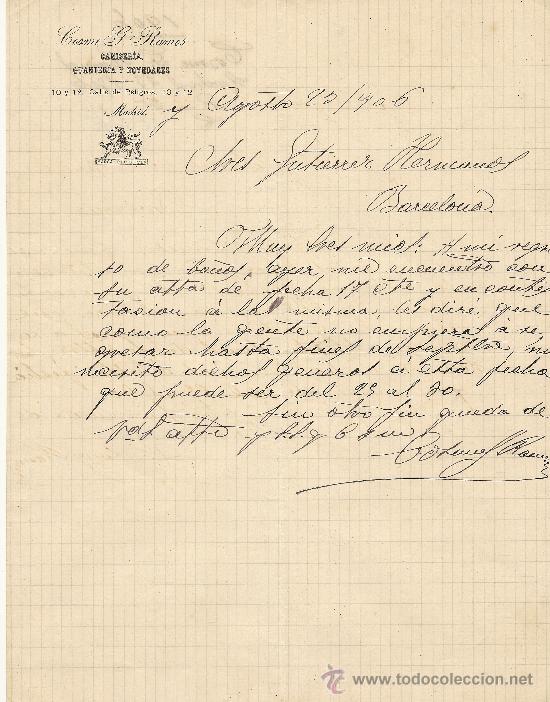 Cosme G. Ramos
CAMISERÍA,
GUANTERÍA Y NOVEDADES
10 y 12, Calle de Peligros, 10 y 12
Madrid
y Agosto 22/906
Sres Gutierrez Hermanos
Barcelona
Muy Sres mios: A mi regre
so de baños, ayer, me encuentro con
su atta de fecha 17 cte y en contes
tasion á la misma, les diré que
como la gente no empieza á re
gresar hasta fines de Septbre,
necesito dichos generos a esta fecha
que puede ser del 25 al 30.
Sin otro fin queda de
Vds atto y s.s. q b s m
Cosme G Ramos
www.todocoleccion.net